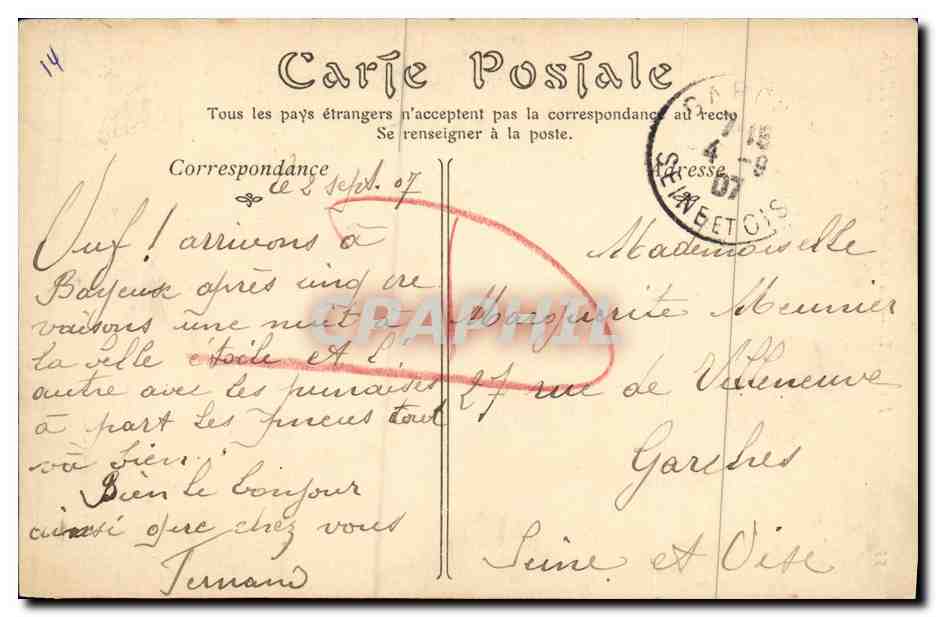 14
Carte Postale
Tous les pays étrangers n'acceptent pas la correspondance au recto
Se renseigner à la poste.
Correspondance
Adresse
7 15
4 - 9
07
SEINE ET OIS
le 2 sept. 07
Ouf ! arrivons à
Bayeux après cinq cre
vaisons une nuit à
la belle étoile et l'
autre avec les punaises
à part les pneus tout
và bien.
Bien le bonjour
ainsi que chez vous
Fernand
Mademoiselle
Marguerite Meunier
27 rue de Villeneuve
Garches
Seine et Oise
CPAPHIL